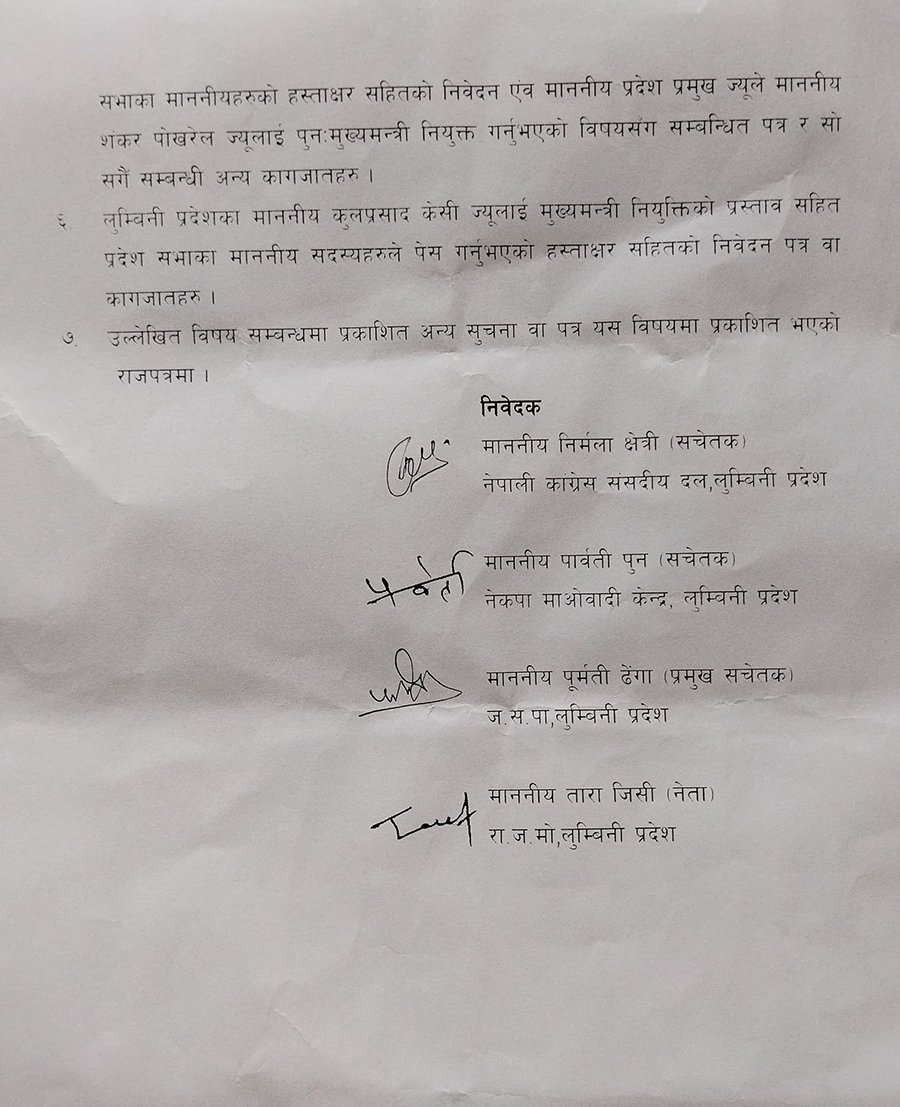 सभाका माननीयहरुको हस्ताक्षर सहितको निवेदन एंव माननीय प्रदेश प्रमुख ज्यूले माननीय
शंकर पोखरेल ज्यूलाई पुन:मुख्यमन्त्री नियुक्त गर्नुभएको विषयसंग सम्बन्धित पत्र र सो
सगैं सम्बन्धी अन्य कागजातहरु ।
६ लुम्विनी प्रदेशका माननीय कुलप्रसाद केसी ज्यूलाई मुख्यमन्त्री नियुक्तिको प्रस्ताव सहित
प्रदेश सभाका माननीय सदस्यहरुले पेस गर्नुभएको हस्ताक्षर सहितको निवेदन पत्र वा
कागजातहरु ।
७. उल्लेखित विषय सम्बन्धमा प्रकाशित अन्य सुचना वा पत्र यस विषयमा प्रकाशित भएको
राजपत्रमा ।
निवेदक
माननीय निर्मला क्षेत्री (सचेतक)
नेपाली कांग्रेस संसदीय दल,लुम्विनी प्रदेश
माननीय पार्वती पुन (सचेतक)
नेकपा माओवादी केन्द्र, लुम्विनी प्रदेश
माननीय पूर्मती ढेंगा (प्रमुख सचेतक)
ज.स.पा,लुम्विनी प्रदेश
माननीय तारा जिसी (नेता)
रा.ज.मो,लुम्विनी प्रदेश